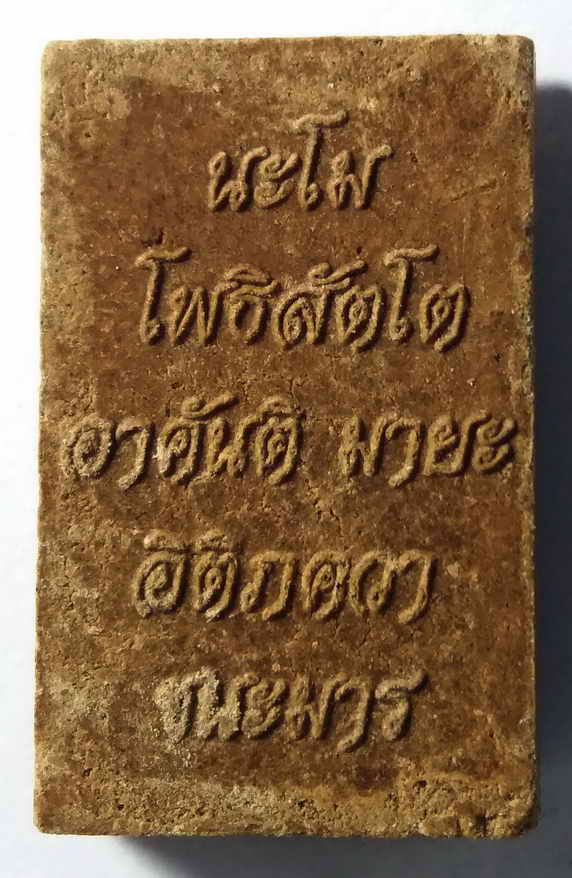 นะโม
โพธิสัตโต
อาคันติ มายะ
อิติภควา
ชนะมาร